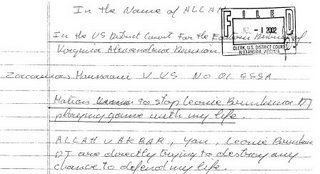 In the Name of ALLAH
In the US District Court For the Eastern District of
Virginia Alexandria Division
Zaccarias Moussaoui V. US No 01 455A
Motion to stop Leonie Brinkema DJ
playing game with my life.
ALLAH U AKBAR, You, Leonie Brinkema
DJ are directly trying to destroy any
chance to defend my life.
FILED
1 2002
CLERK, U.S. DISTRICT COURT
ALEXANDRIA, VIRGINIA